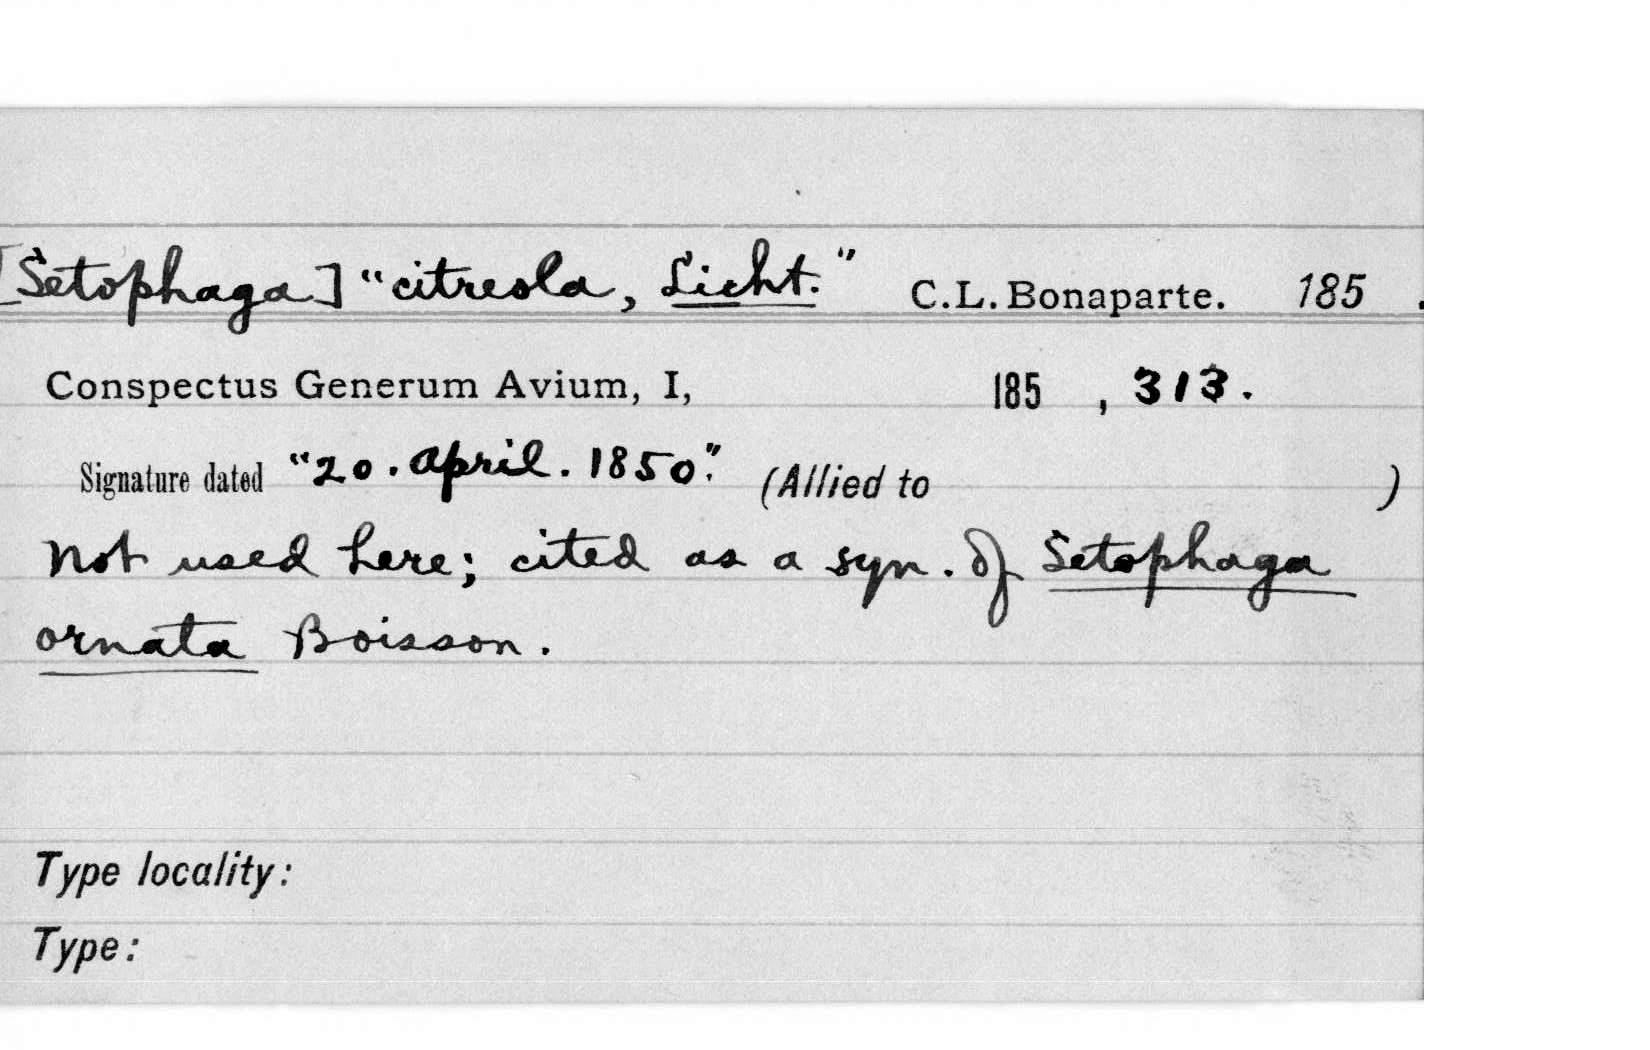 [Setophaga] "citreola, Licht." C.L. Bonaparte. 185 .
Conspectus Generum Avium, I, 185 , 313.
Signature dated "20. April. 1850". (Allied to )
Not used here; cited as a syn. of Setophaga
ornata Boisson.
Type locality:
Type: